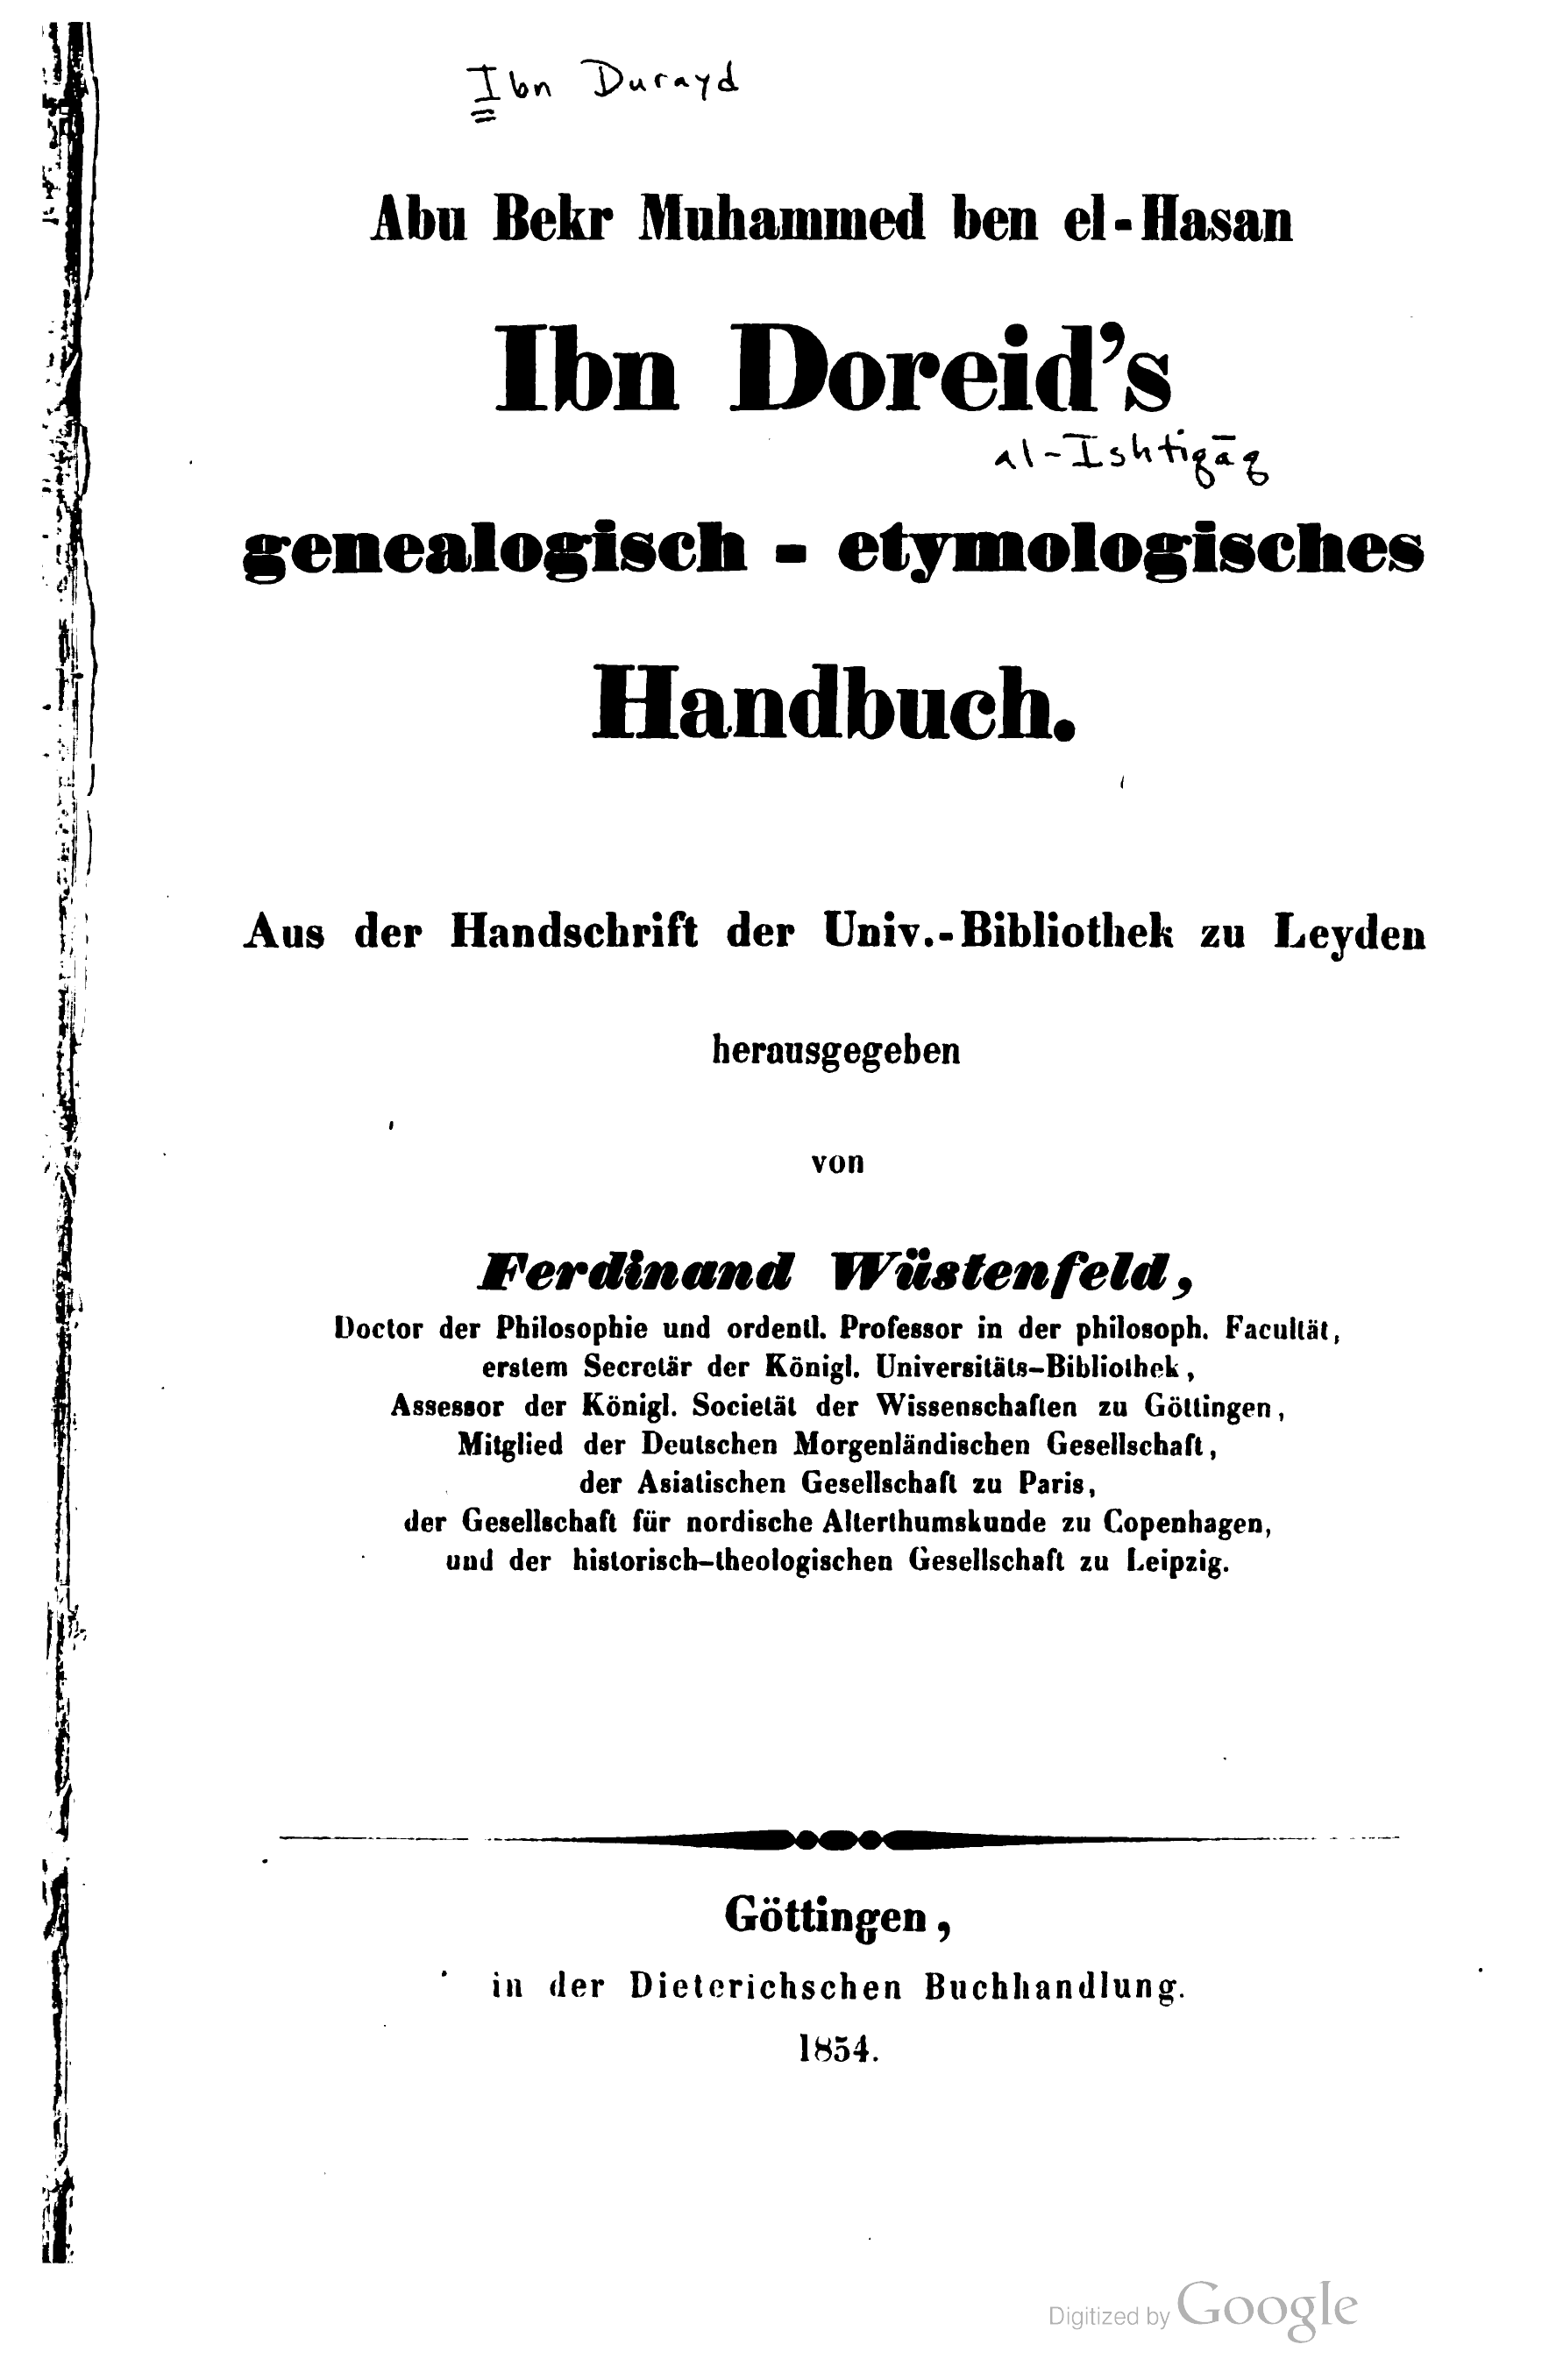 Ibn Durayd
Abu Bekr Muhammed ben el-Hasan
Ibn Doreid's
al-Ishtiqāq
genealogisch - etymologisches
Handbuch.
Aus der Handschrift der Univ.-Bibliothek zu Leyden
herausgegeben
von
Ferdinand Wüstenfeld,
Doctor der Philosophie und ordentl. Professor in der philosoph. Facultät,
erstem Secretär der Königl. Universitäts-Bibliothek,
Assessor der Königl. Societät der Wissenschaften zu Göttingen,
Mitglied der Deutschen Morgenländischen Gesellschaft,
der Asiatischen Gesellschaft zu Paris,
der Gesellschaft für nordische Alterthumskunde zu Copenhagen,
und der historisch-theologischen Gesellschaft zu Leipzig.
Göttingen,
in der Dieterichschen Buchhandlung.
1854.
Digitized by Google